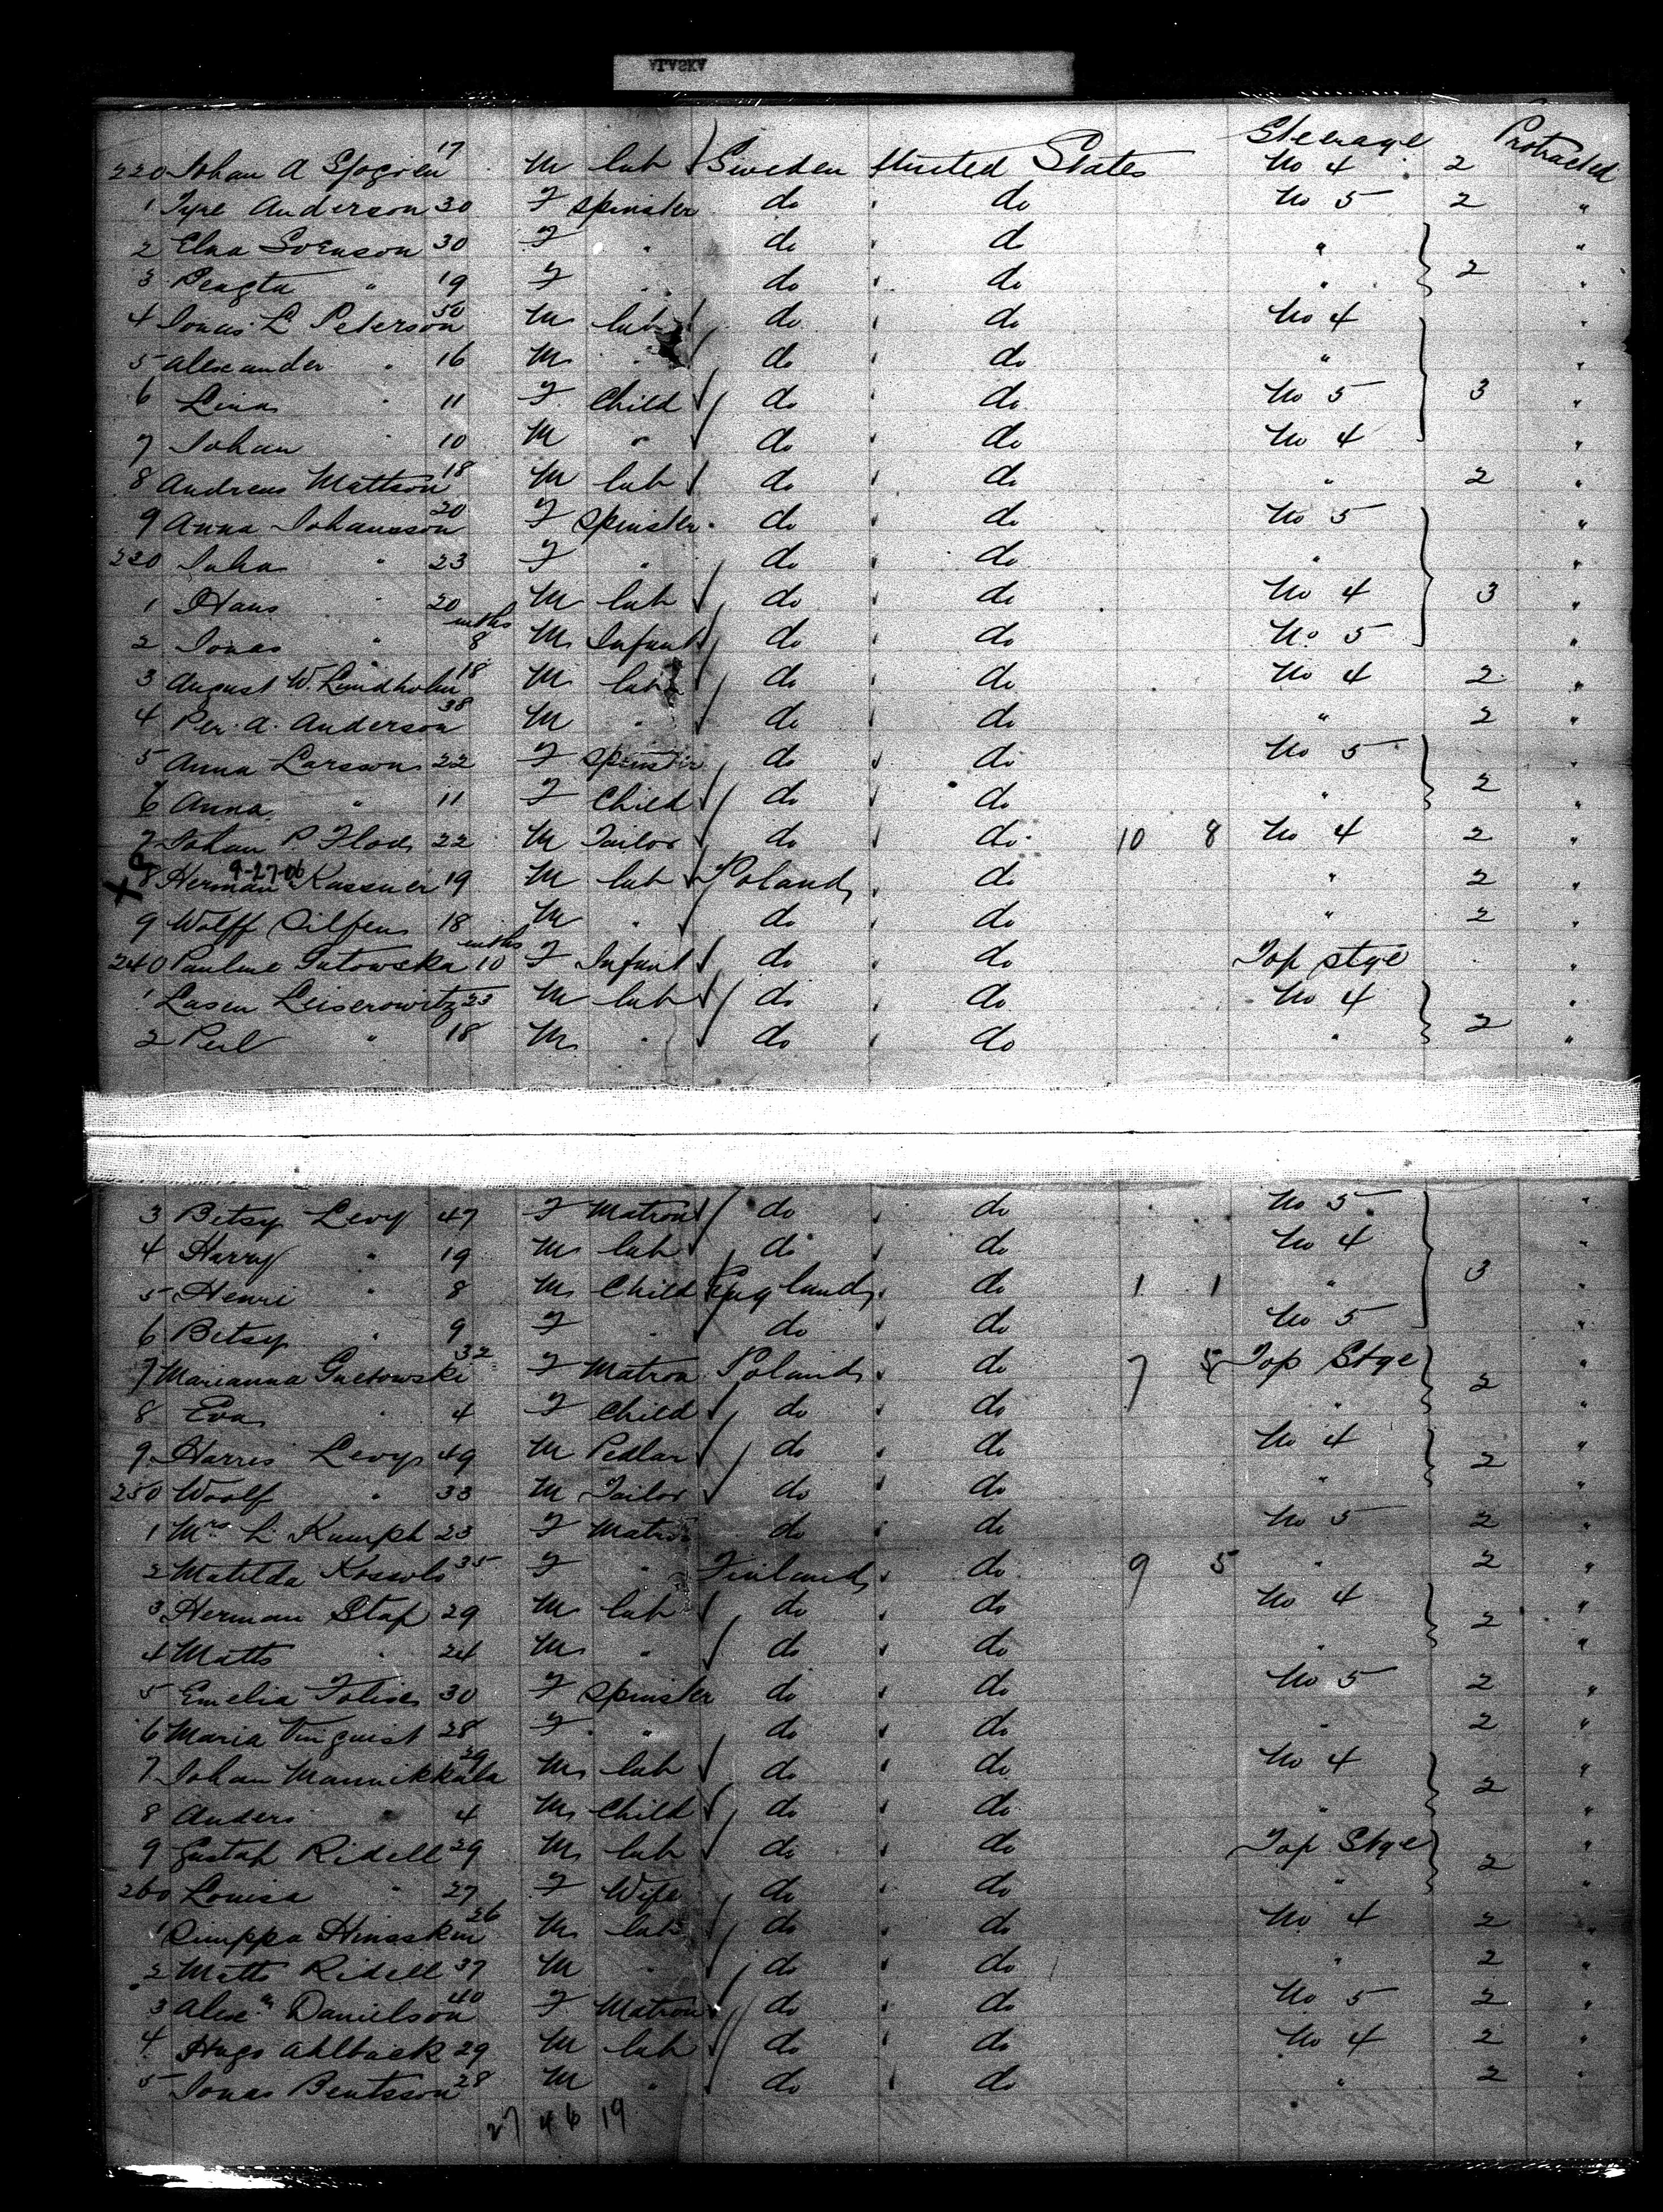 ALASKA
Steerage Protracted
220 Johan A 17 M lab Sweden United States No 4 2
1 Anderson 30 F Spinster do do No 5 2 "
2 Elna Svenson 30 F " do do " "
3 Bengta " 19 F " do do " 2 "
4 Jonas L Peterson 50 M lab do do No 4 "
5 Alexander " 16 M " do do " "
6 Lina " 11 F Child do do No 5 3 "
7 Johan " 10 M " do do No 4 "
8 Andreas Mattson 18 M lab do do " 2 "
9 Anna Johansson 20 F Spinster do do No 5 "
230 " 23 F " do do " "
1 Hans " 20 M lab do do No 4 3 "
2 Jonas " 8 mths M Infant do do No 5 "
3 August W. Lindholm 18 M lab do do No 4 2 "
4 Per. A. Anderson 38 M " do do " 2 "
5 Anna Larsson 22 F Spinster do do No 5 "
6 Anna " 11 F Child do do " 2 "
7 Johan P Flod 22 M Tailor do do 10 8 No 4 2 "
9-27-06
X 8 Herman Kassner 19 M lab Poland do " 2 "
9 Wolff 18 M " do do " 2 "
240 Pauline Gutowska 10 mths F Infant do do Top stge "
1 Leiserowitz 23 M lab do do No 4 "
2 Perl " 18 M " do do " 2 "
3 Betsy Levy 47 F Matron do do No 5 "
4 Harry " 19 M lab do do No 4 "
5 Henri " 8 M Child England do 1 1 " 3 "
6 Betsy " 9 F " do do No 5
7 Marianna 32 F Matron Poland do 7 5 Top Stge "
8 Eva " 4 F Child do do " 2 "
9 Harris Levy 49 M Pedlar do do No 4 "
250 Woolf " 33 M Tailor do do " 2 "
1 Mrs L Kumph 23 F Matron do do No 5 2 "
2 Matilda 35 F " Finland do 9 5 " 2 "
3 Herman Staf 29 M lab do do No 4 "
4 Matts " 24 M " do do " 2 "
5 Emelia 30 F Spinster do do No 5 2 "
6 Maria 28 F " do do " 2 "
7 Johan Mannikkala 29 M lab do do No 4 "
8 Anders " 4 M Child do do " 2 "
9 Gustaf Ridell 29 M lab do do Top Stge "
260 Louisa " 27 F Wife do do " 2 "
1 26 M lab do do No 4 2 "
2 Matts Ridell 37 M " do do " 2 "
3 Alexa Danielson 40 F Matron do do No 5 2 "
4 Hugo Ahlback 29 M lab do do No 4 2 "
5 Jonas Bentsson 28 M " do do " 2 "
27 46 19